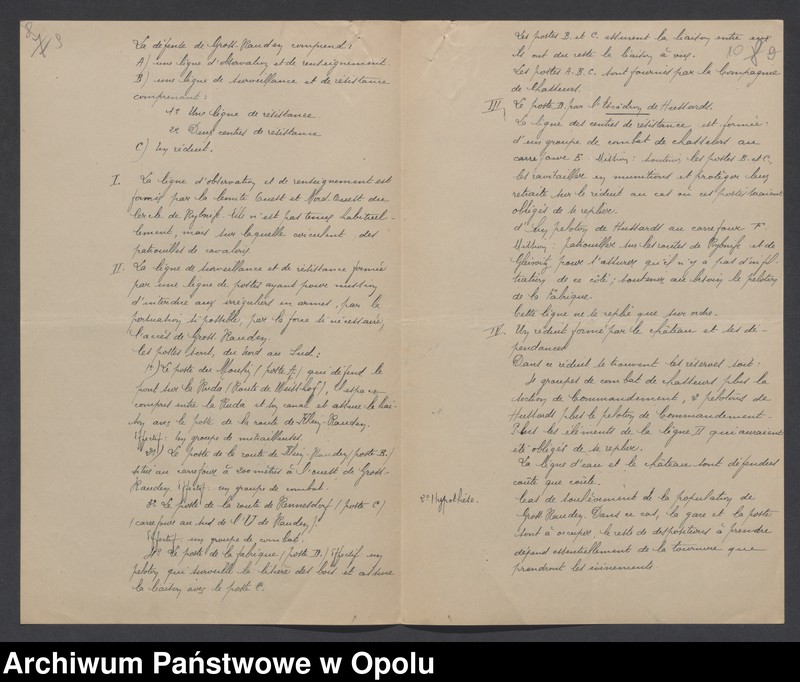 La défense de Gross-Rauden comprend:
A) une ligne d'observation et de renseignement.
B) une ligne de surveillance et de résistance
comprenant:
1º Une ligne de résistance
2º Deux centres de résistance
C) Un réduit.
I. La ligne d'observation et de renseignement est
formée par la limite Ouest et Nord-Ouest du
Cercle de Rybnik. Elle n'est pas tenue habituel-
lement, mais sur laquelle circulent des
patrouilles de cavalerie.
II. La ligne de surveillance et de résistance formée
par une ligne de postes ayant pour mission
d'interdire aux irréguliers en armes, par la
persuasion si possible, par la force si nécessaire,
l'accès de Gross Rauden.
Les postes sont, du Nord au Sud:
1º) Le poste du Moulin (poste A) qui défend le
pont sur la Ruda (Route de ), l'espace
compris entre la Ruda et un canal et assure la liai-
son avec le poste de la route de Klein-Rauden.
Effectif: un groupe de mitrailleuses.
2º) Le poste de la route de Klein-Rauden (poste B)
situé au carrefour à 200 mètres à l'ouest de Gross-
Rauden. Effectif: un groupe de combat.
3º Le poste de la route de Rennersdorf (poste C)
(carrefour au sud de l'U de Rauden).
Effectif: un groupe de combat.
4º Le poste de la fabrique (poste D.) Effectif un
peloton qui surveille la lisière des bois et assure
la liaison avec le poste C.
Les postes B. et C. assurent la liaison entre eux
Ils ont du reste la liaison à vue.
10 9
Les postes A.B.C. sont fournis par la Compagnie
de Chasseurs.
Le poste D. par l'Escadron de Hussards.
III, La ligne des centres de résistance est formée:
d'un groupe de combat de chasseurs au
carrefour E. Mission: soutenir les postes B. et C,
les ravitailler en munitions et protéger leur
retraite sur le réduit au cas où ces postes seraient
obligés de se replier.
d'Un peloton de Hussards au carrefour F
Mission: patrouiller sur les routes de Rybnik et de
Gleiwitz pour s'assurer qu'il n'y a pas d'infil-
tration de ce côté; soutenir au besoin le peloton
de la Fabrique.
Cette ligne ne se replie que sur ordre.
IV. Un réduit formé par le château et ses dé-
pendances
Dans ce réduit se trouvent les réserves soit:
groupes de combat de chasseurs plus la
section de Commandement, 2 pelotons de
Hussards plus le peloton de Commandement.
Plus les éléments de la ligne II qui auraient
été obligés de se replier.
La ligne d'eau et le château sont défendus
coûte que coûte.
2e Hypothèse. Cas de soulèvement de la population de
Gross Rauden. Dans ce cas, la gare et la poste
sont à occuper, le reste des dispositions à prendre
dépend essentiellement de la tournure que
prendront les évènements
Archiwum Państwowe w Opolu